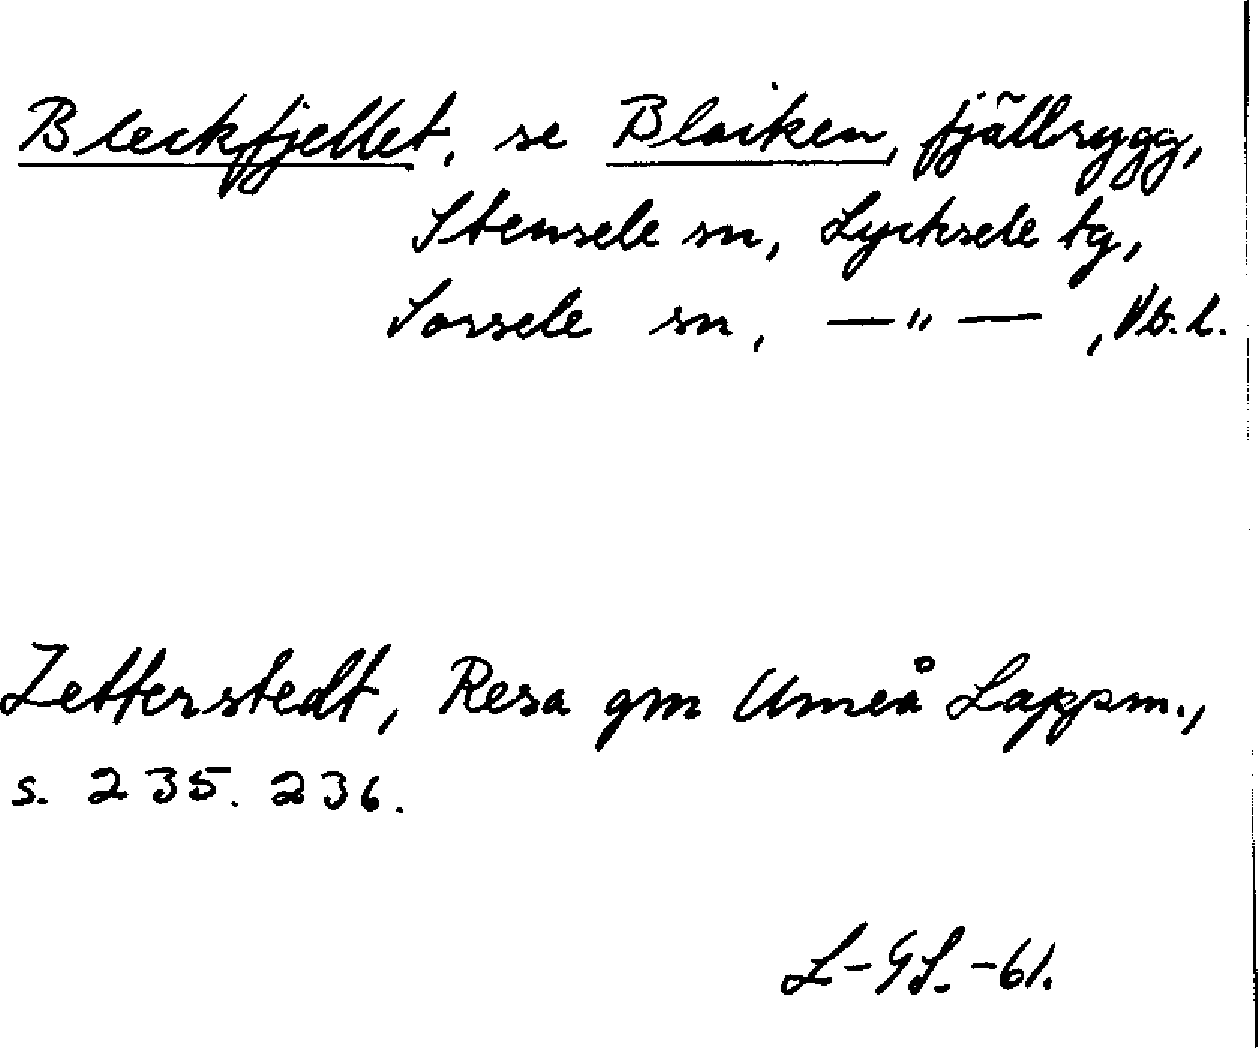 Bleckfjellet, se Blaiken, fjällrygg,
Stensele sn, Lycksele tg,
Sorsele sn, —"— , Vb.l.
Zetterstedt, Resa gm Umeå Lappm.,
s. 235. 236.
L-GS.-61.